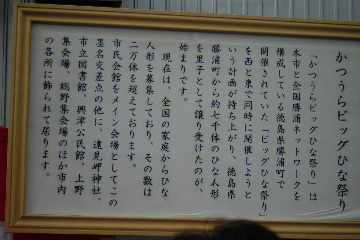 かつうらビッグひな祭り
「かつうらビッグひな祭り」は
本市と全国勝浦ネットワークを
構成している徳島県勝浦町で
開催されていた「ビッグひな祭り」
を西と東で同時に開催しようと
いう計画が持ち上がり、徳島県
勝浦町から約七千体のひな人形
を里子として譲り受けたのが、
始まりです。
現在は、全国の家庭からひな
人形を募集しており、その数は
二万体を超えております。
市民会館をメイン会場としてこの
墨名交差点の他に、遠見岬神社、
市立図書館、興津公民館、上野
集会場、総野集会場のほか市内
の各所に飾られて居ります。